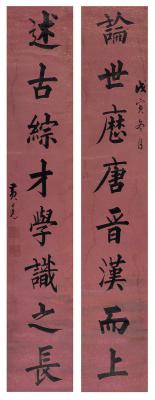 論世歷唐晉漢而上
戊寅冬月
述古綜才學識之長